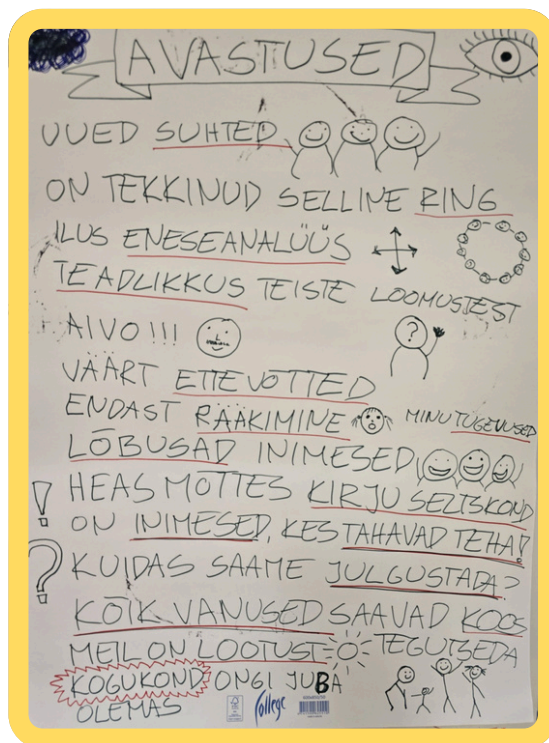 AVASTUSED
UUED SUHTED
ON TEKKINUD SELLINE RING
ILUS ENESEANALÜÜS
TEADLIKKUS TEISTE LOOMUSTEST
AIVO!!!
?
VÄÄRT ETTEVÕTTED
ENDAST RÄÄKIMINE MINU TUGEVUSED
LÕBUSAD INIMESED
! HEAS MÕTTES KIRJU SELTSKOND
ON INIMESED, KES TAHAVAD TEHA!
? KUIDAS SAAME JULGUSTADA?
KÕIK VANUSED SAAVAD KOOS
MEIL ON LOOTUST TEGUTSEDA
KOGUKOND ONGI JUBA
OLEMAS
College